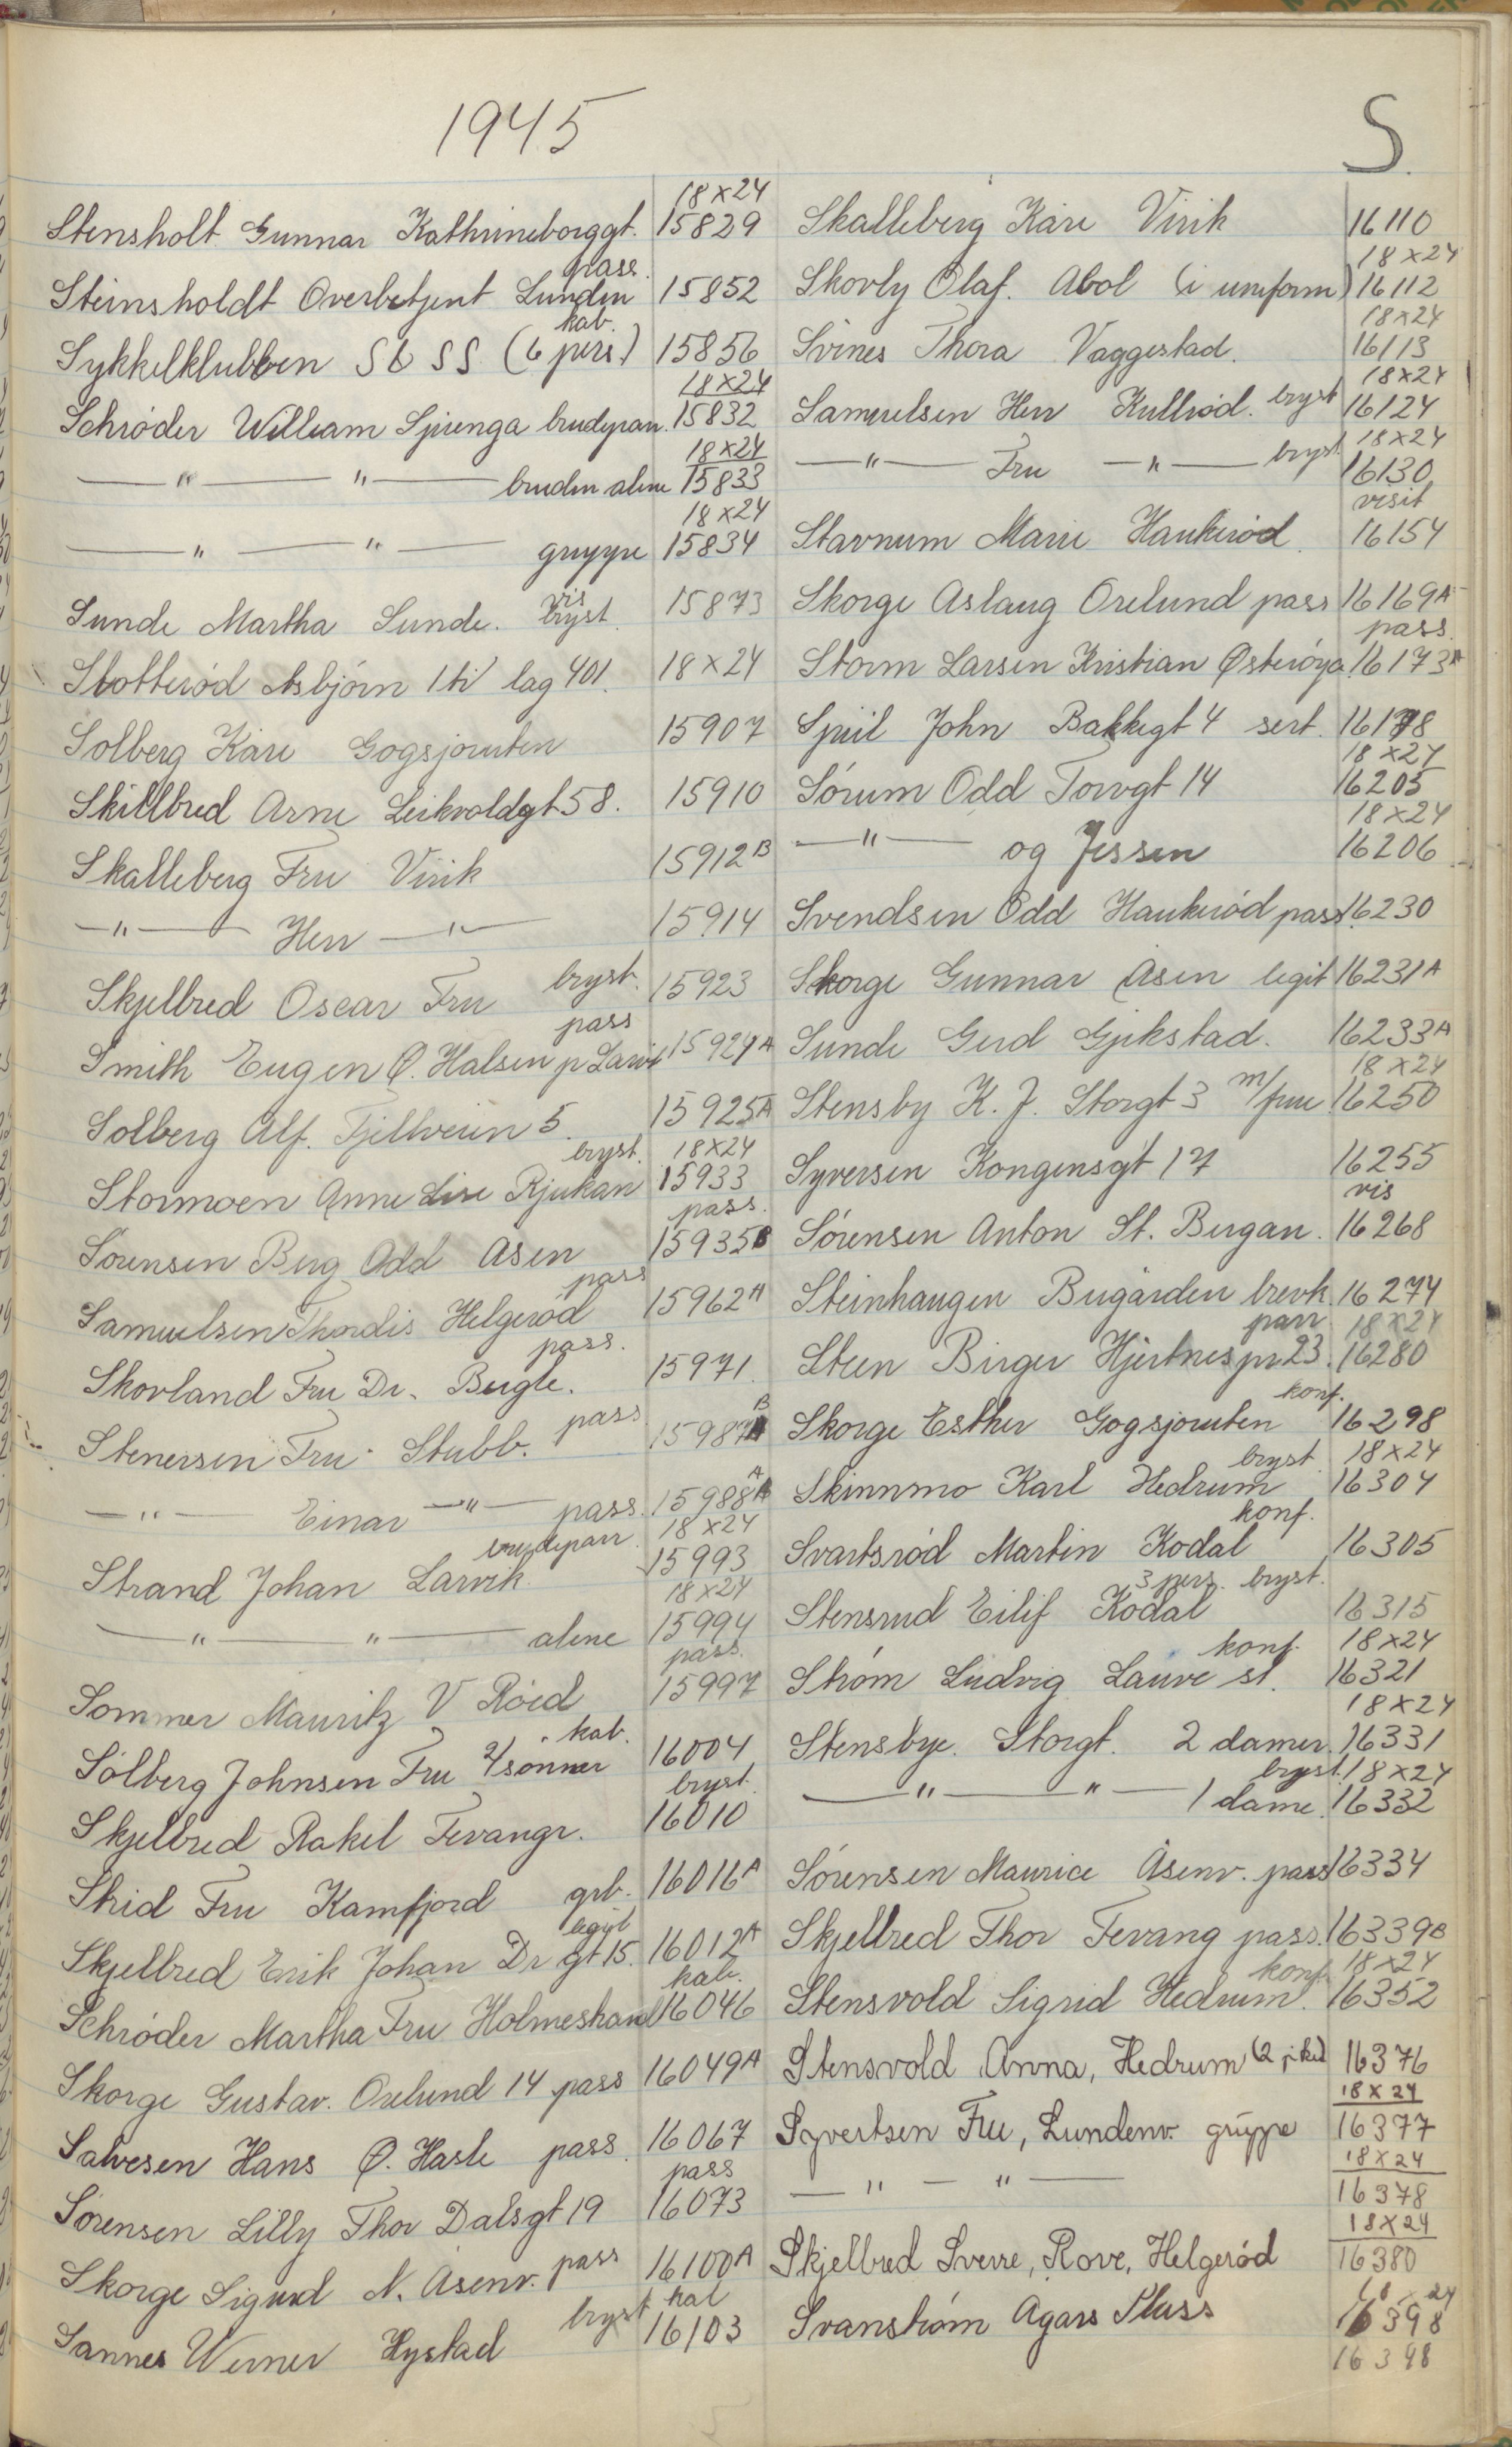 1945
S.
18×24
Stensholt Gunnar Kathrineborggt. 15829
pass.
Steinsholdt Overbetjent Lunden 15852
kab.
Sykkelklubben St SS (6 pers.) 15856
18×24
Schrøder William Spirenga brudepar. 15832
18×24
—"— —"— bruden alene 15833
18×24
—"— —"— gruppe 15834
vis
Sunde Martha Sunde. bryst. 15873
Slotterød Asbjørn 1ti lag 401. 18×24
Solberg Kåre Gogsjøruten 15907
Skillbred Arne Leikvoldgt 58. 15910
Skalleberg Fru Virik 15912B
—"— Herr —"— 15914
Skjelbred Oscar Fru bryst. 15923
pass
Smith Eugen Ø. Halsen p Larvik 15924A
Solberg Alf. Fjellveien 5. 15925A
bryst. 18×24
Stormoen Anne Lise Rjukan 15933
pass.
Sørensen Berg Odd Åsen 15935B
pass
Samuelsen Thordis Helgerød 15962A
pass.
Skovland Fru Dr. Bugle. 15971.
Stenersen Fru. Stubb. pass 15987B
—"— Einar —"— pass. 15988A
brudeparr. 18×24
Strand Johan Larvik 15993
18×24
—"— —"— alene 15994
pass.
Sommer Mauritz V Røed 15997
kab.
Solberg Johnsen Fru 2/sønner 16004
bryst.
Skjelbred Rakel Fevangr. 16010
Skid Fru Kamfjord grb. 16016A
legit
Skjelbred Erik Johan Dr gt 15. 16012A
kab.
Schrøder Martha Fru Holmeshavd 16046
Skorge Gustav. Orelund 14 pass 16049A
Salvesen Hans Ø. Hasle pass. 16067
pass
Sørensen Lilly Thor Dalsgt 19 16073
Skorge Sigurd N. Åsenv. pass 16100A
bryst kab
Sannes Werner Hystad 16103
Skalleberg Kåre Virik 16110
18×24
Skovly Olaf. Abol (i uniform) 16112
18×24
Svines Thora Vaggestad. 16113
18×24
Samuelsen Herr Kullrød. bryst 16124
18×24
—"— Fru —"— bryst. 16130
visit
Stavnum Marie Haukerød. 16154
Skorge Aslaug Orelund pass 16169A
pass.
Storm Larsen Kristian Østerøya. 16173A
Spiil John Bakkegt 4 sert. 16178
18×24
Sørum Odd Torvgt 14 16205
18×24
—"— og Jessen 16206
Svendsen Odd Haukerød pass. 16230
Skorge Gunnar Åsen legit 16231A
Sunde Gerd Gjekstad. 16233A
18×24
Stensby K. J. Storgt 3 m/frue 16250
Syversen Kongensgt 17 16255
vis
Sørensen Anton St. Bergan. 16268
Steinhaugen Bugården brevk. 16274
parr 18×24
Steen Birger Hjertnespr. 23. 16280
konf.
Skorge Esther Gogsjøruten 16298
bryst. 18×24
Skinnmo Karl Hedrum 16304
konf.
Svartsrød Martin Kodal 16305
3 pers. bryst.
Stensrud Eilif Kodal 16315
konf. 18×24
Strøm Ludvig Lauve st. 16321
18×24
Stensbye. Storgt. 2 damer. 16331
bryst. 18×24
—"— —"— 1 dame. 16332
Sørensen Maurice Åsenv. pass 16334
Skjelbred Thor Fevang pass. 16339B
konf. 18×24
Stensvold Sigrid Hedrum. 16352
Stensvold Anna, Hedrum 16376
18×24
Syvertsen Fru, Lundenv. gruppe 16377
18×24
—"— —"— 16378
18×24
Skjelbred Sverre, Rove, Helgerød 16380
18×24
Svanstrøm Agars Plass 16398
16398